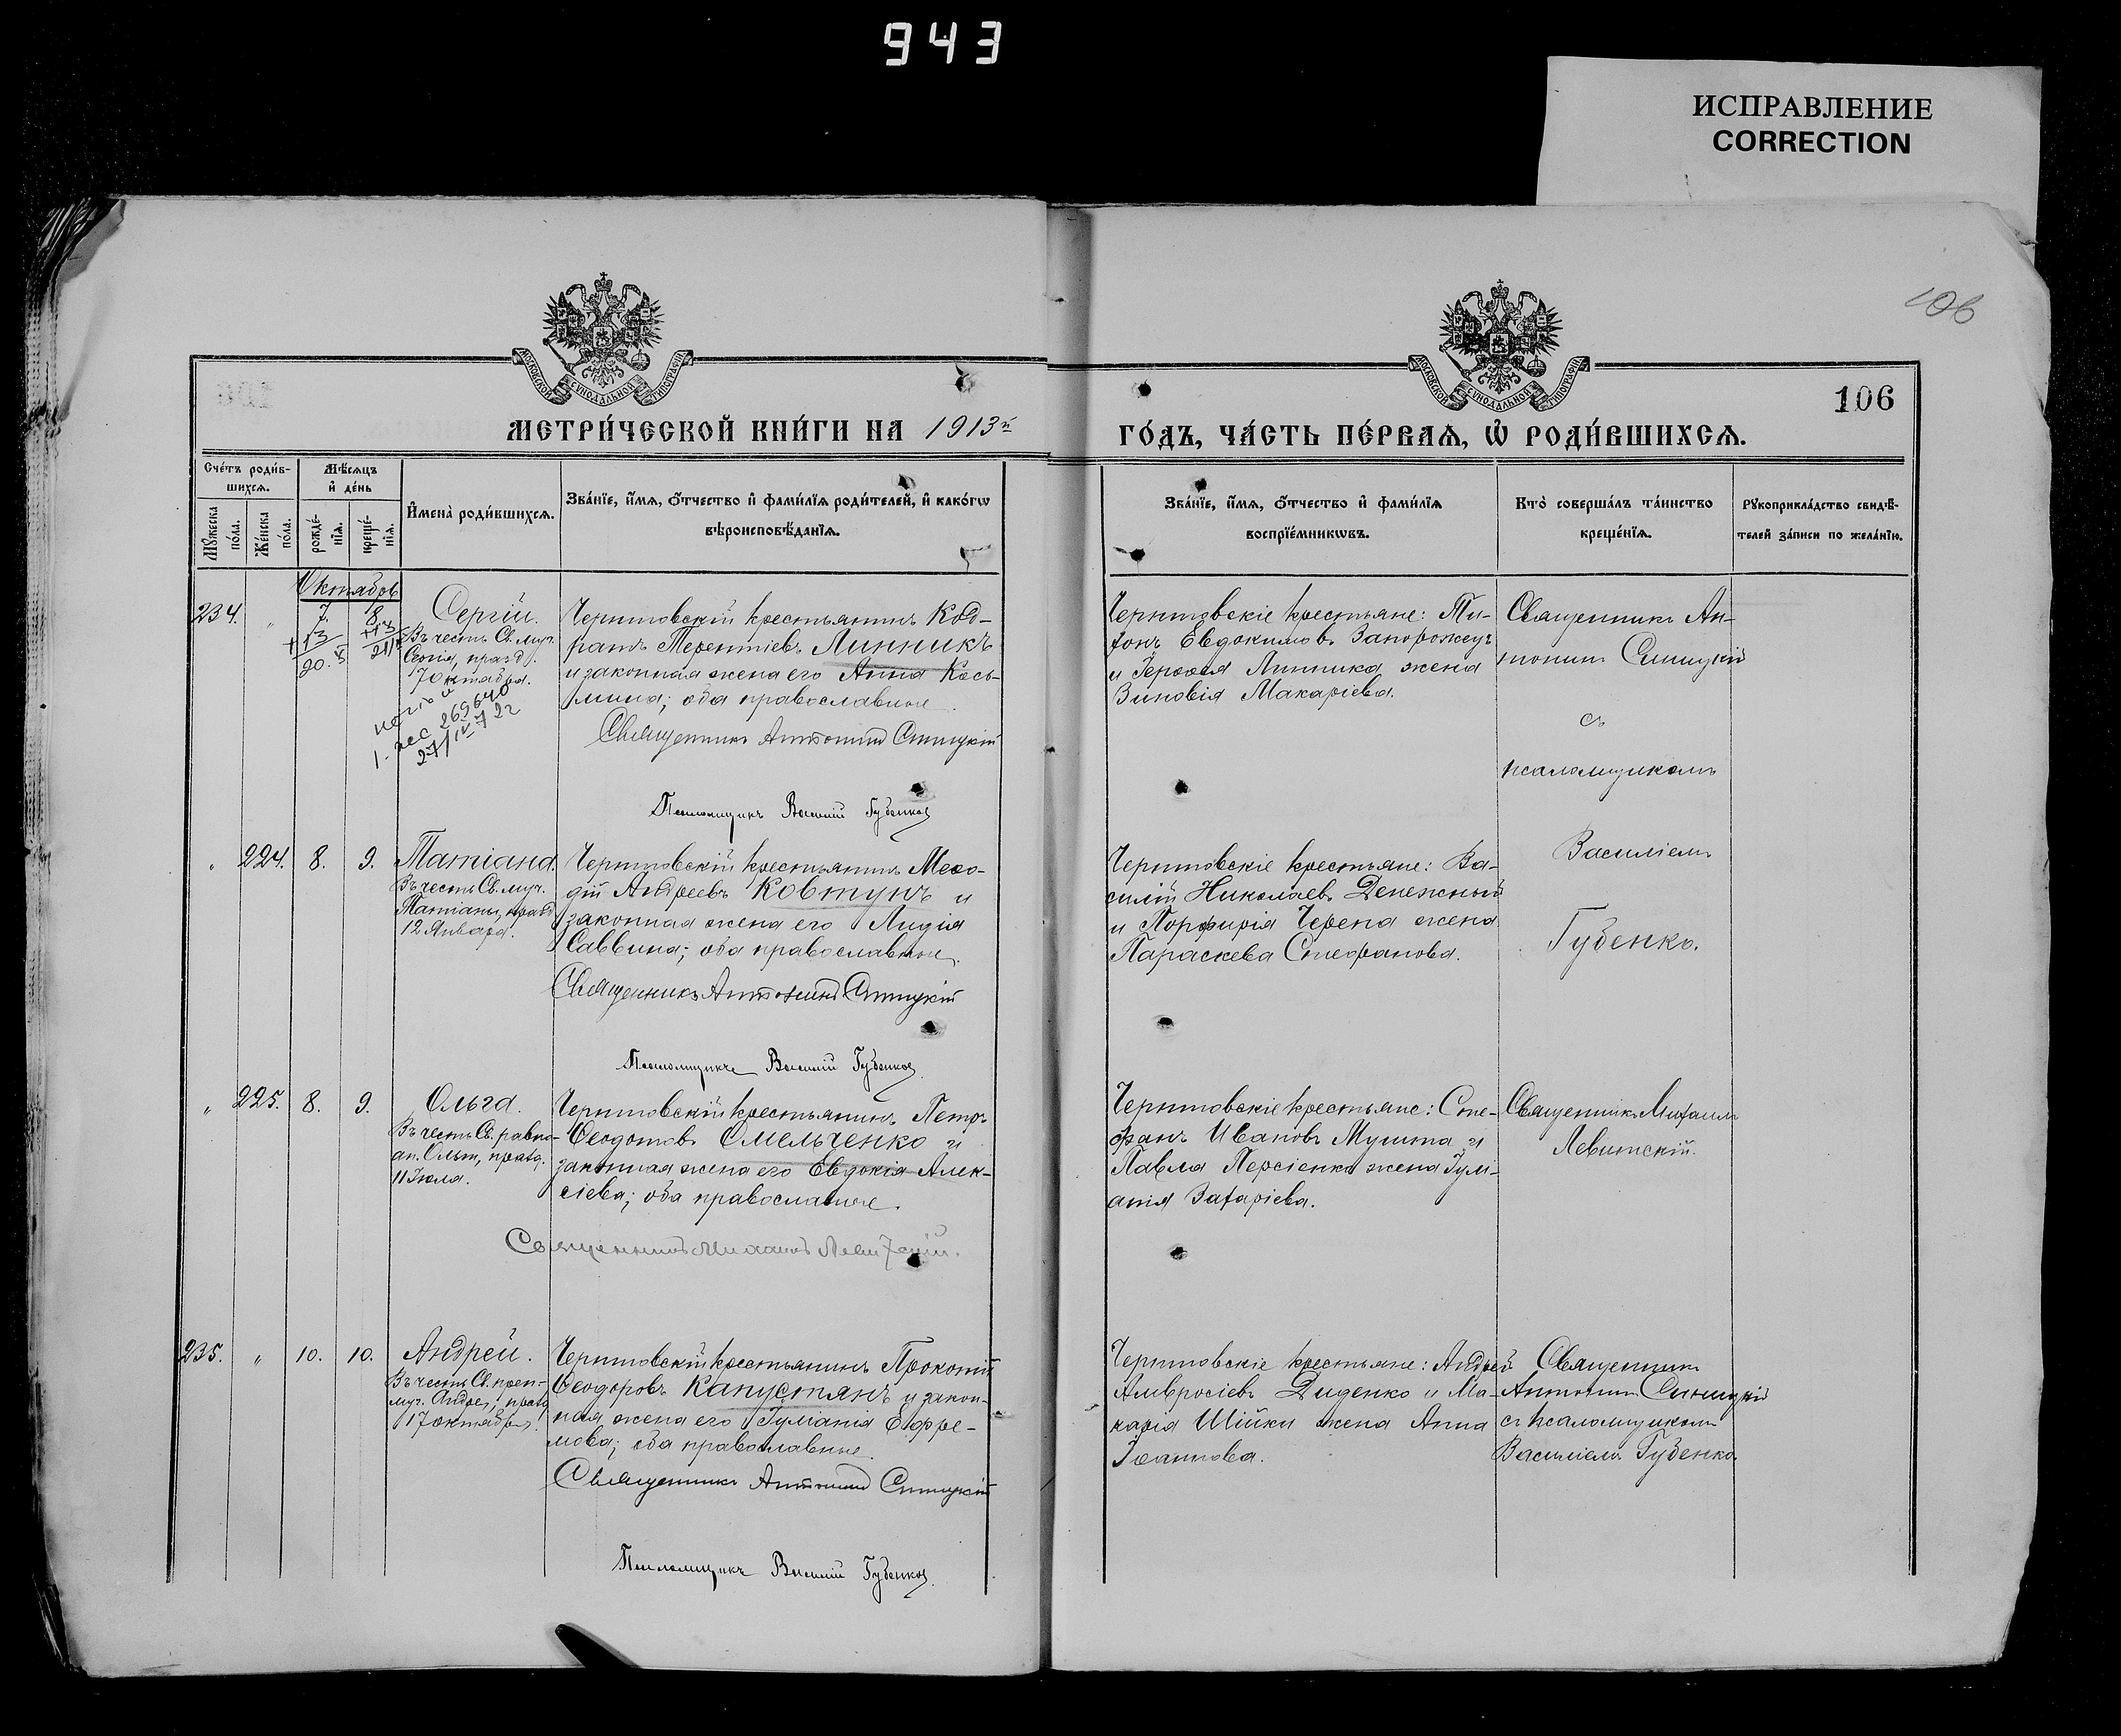 943
ИСПРАВЛЕНИЕ
CORRECTION
106
106
МОСКОВСКОЙ СѴНОДАЛЬНОЙ ТИПОГРАФІИ
МОСКОВСКОЙ СѴНОДАЛЬНОЙ ТИПОГРАФІИ
МЕТРИ́ЧЕСКОЙ КНИ́ГИ НА 1913й
ГО́ДЪ, ЧА́СТЬ ПЕ́РВАѦ, Ѡ҆ РОДИ́ВШИХСѦ.
Сче́тъ роди́в-
шихсѧ.
Мѣ́сѧцъ
и҆ де́нь
Мꙋ́жеска
по́ла.
Же́нска
по́ла.
рожде́-
нїѧ.
креще́-
нїѧ.
И҆мена̀ роди́вшихсѧ.
Зва́нїе, и҆́мѧ, ѻ҆́тчество и҆ фами́лїѧ роди́телей, и҆ како́гѡ
вѣроисповѣ́данїѧ.
Зва́нїе, и҆́мѧ, ѻ҆́тчество и҆ фами́лїѧ
воспрїе́мникѡвъ.
Кто̀ соверша́лъ та́инство
креще́нїѧ.
Рꙋкоприкла́дство свидѣ́-
телей за́писи по жела́нїю.
Октябрь
234. " 7. 8. Сергій.
+13 +13
20. X 21/X
Въ честь Св. муч.
Сергія, празд.
7 Октября.
269640
27/IV 72г
Черниговскій крестьянинъ Код-
ратъ Терентіевъ Линникъ
и законная жена его Анна Кось-
мина; оба православные.
Священникъ Антонинъ Синицкій
Псаломщикъ Василій Губенко
Запорожецъ
и Линника жена
Зиновія Макаріева.
Священникъ Ан-
тонинъ Синицкій
съ
псаломщикомъ
Василіемъ
Губенко.
" 224. 8. 9. Татіана.
Въ честь Св. муч.
Татіаны, празд.
12 Января.
крестьянинъ Меѳо-
дій Андреевъ Ковтунъ и
законная жена его Лидія
Саввина; оба православные.
Священникъ Антонинъ Синицкій
Псаломщикъ Василій Губенко
крестьяне: Ва-
силій Николаевъ Денежный
и Порфирія Черепа жена
Параскева Стефанова.
" 225. 8. 9. Ольга.
Въ честь Св. равно-
ап. Ольги, празд.
11 Іюля.
крестьянинъ Петръ
Ѳеодотовъ Омельченко и
законная жена его Евдокія Алек-
сіева; оба православные.
Священникъ Михаилъ Левитскій.
крестьяне: Сте-
фанъ Ивановъ Мушта и
Павла Персіенка жена Іулі-
анія Захаріева.
Священникъ Михаилъ
Левитскій.
235. " 10. 10. Андрей.
Въ честь Св. преп-
муч. Андрея, празд.
17 октября.
крестьянинъ Прокопій
Ѳеодоровъ Капустянъ и закон-
ная жена его Іуліанія Ефре-
мова; оба православные.
Священникъ Антонинъ Синицкій
Псаломщикъ Василій Губенко
крестьяне: Андрей
Амвросіевъ Диденко и Ма-
карія Шійки жена Анна
Іоаннова.
Священникъ
Антонинъ Синицкій
съ псаломщикомъ
Василіемъ Губенко.